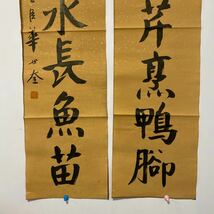 芹烹鴨腳
水長魚苗
華世奎